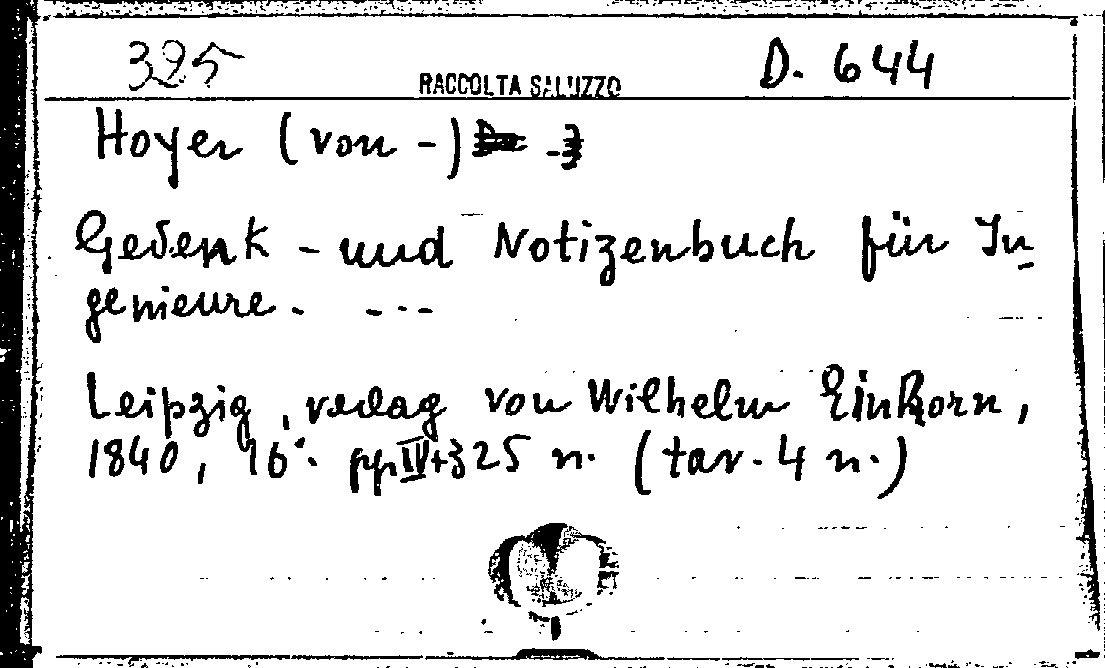 325 RACCOLTA SALUZZO D. 644
Hoyer (von -)
Gedenk - und Notizenbuch für In
genieure. ...
Leipzig, verlag von Wilhelm Einhorn,
1840, 16°. pp. IV+325 n. (tav. 4 n.)